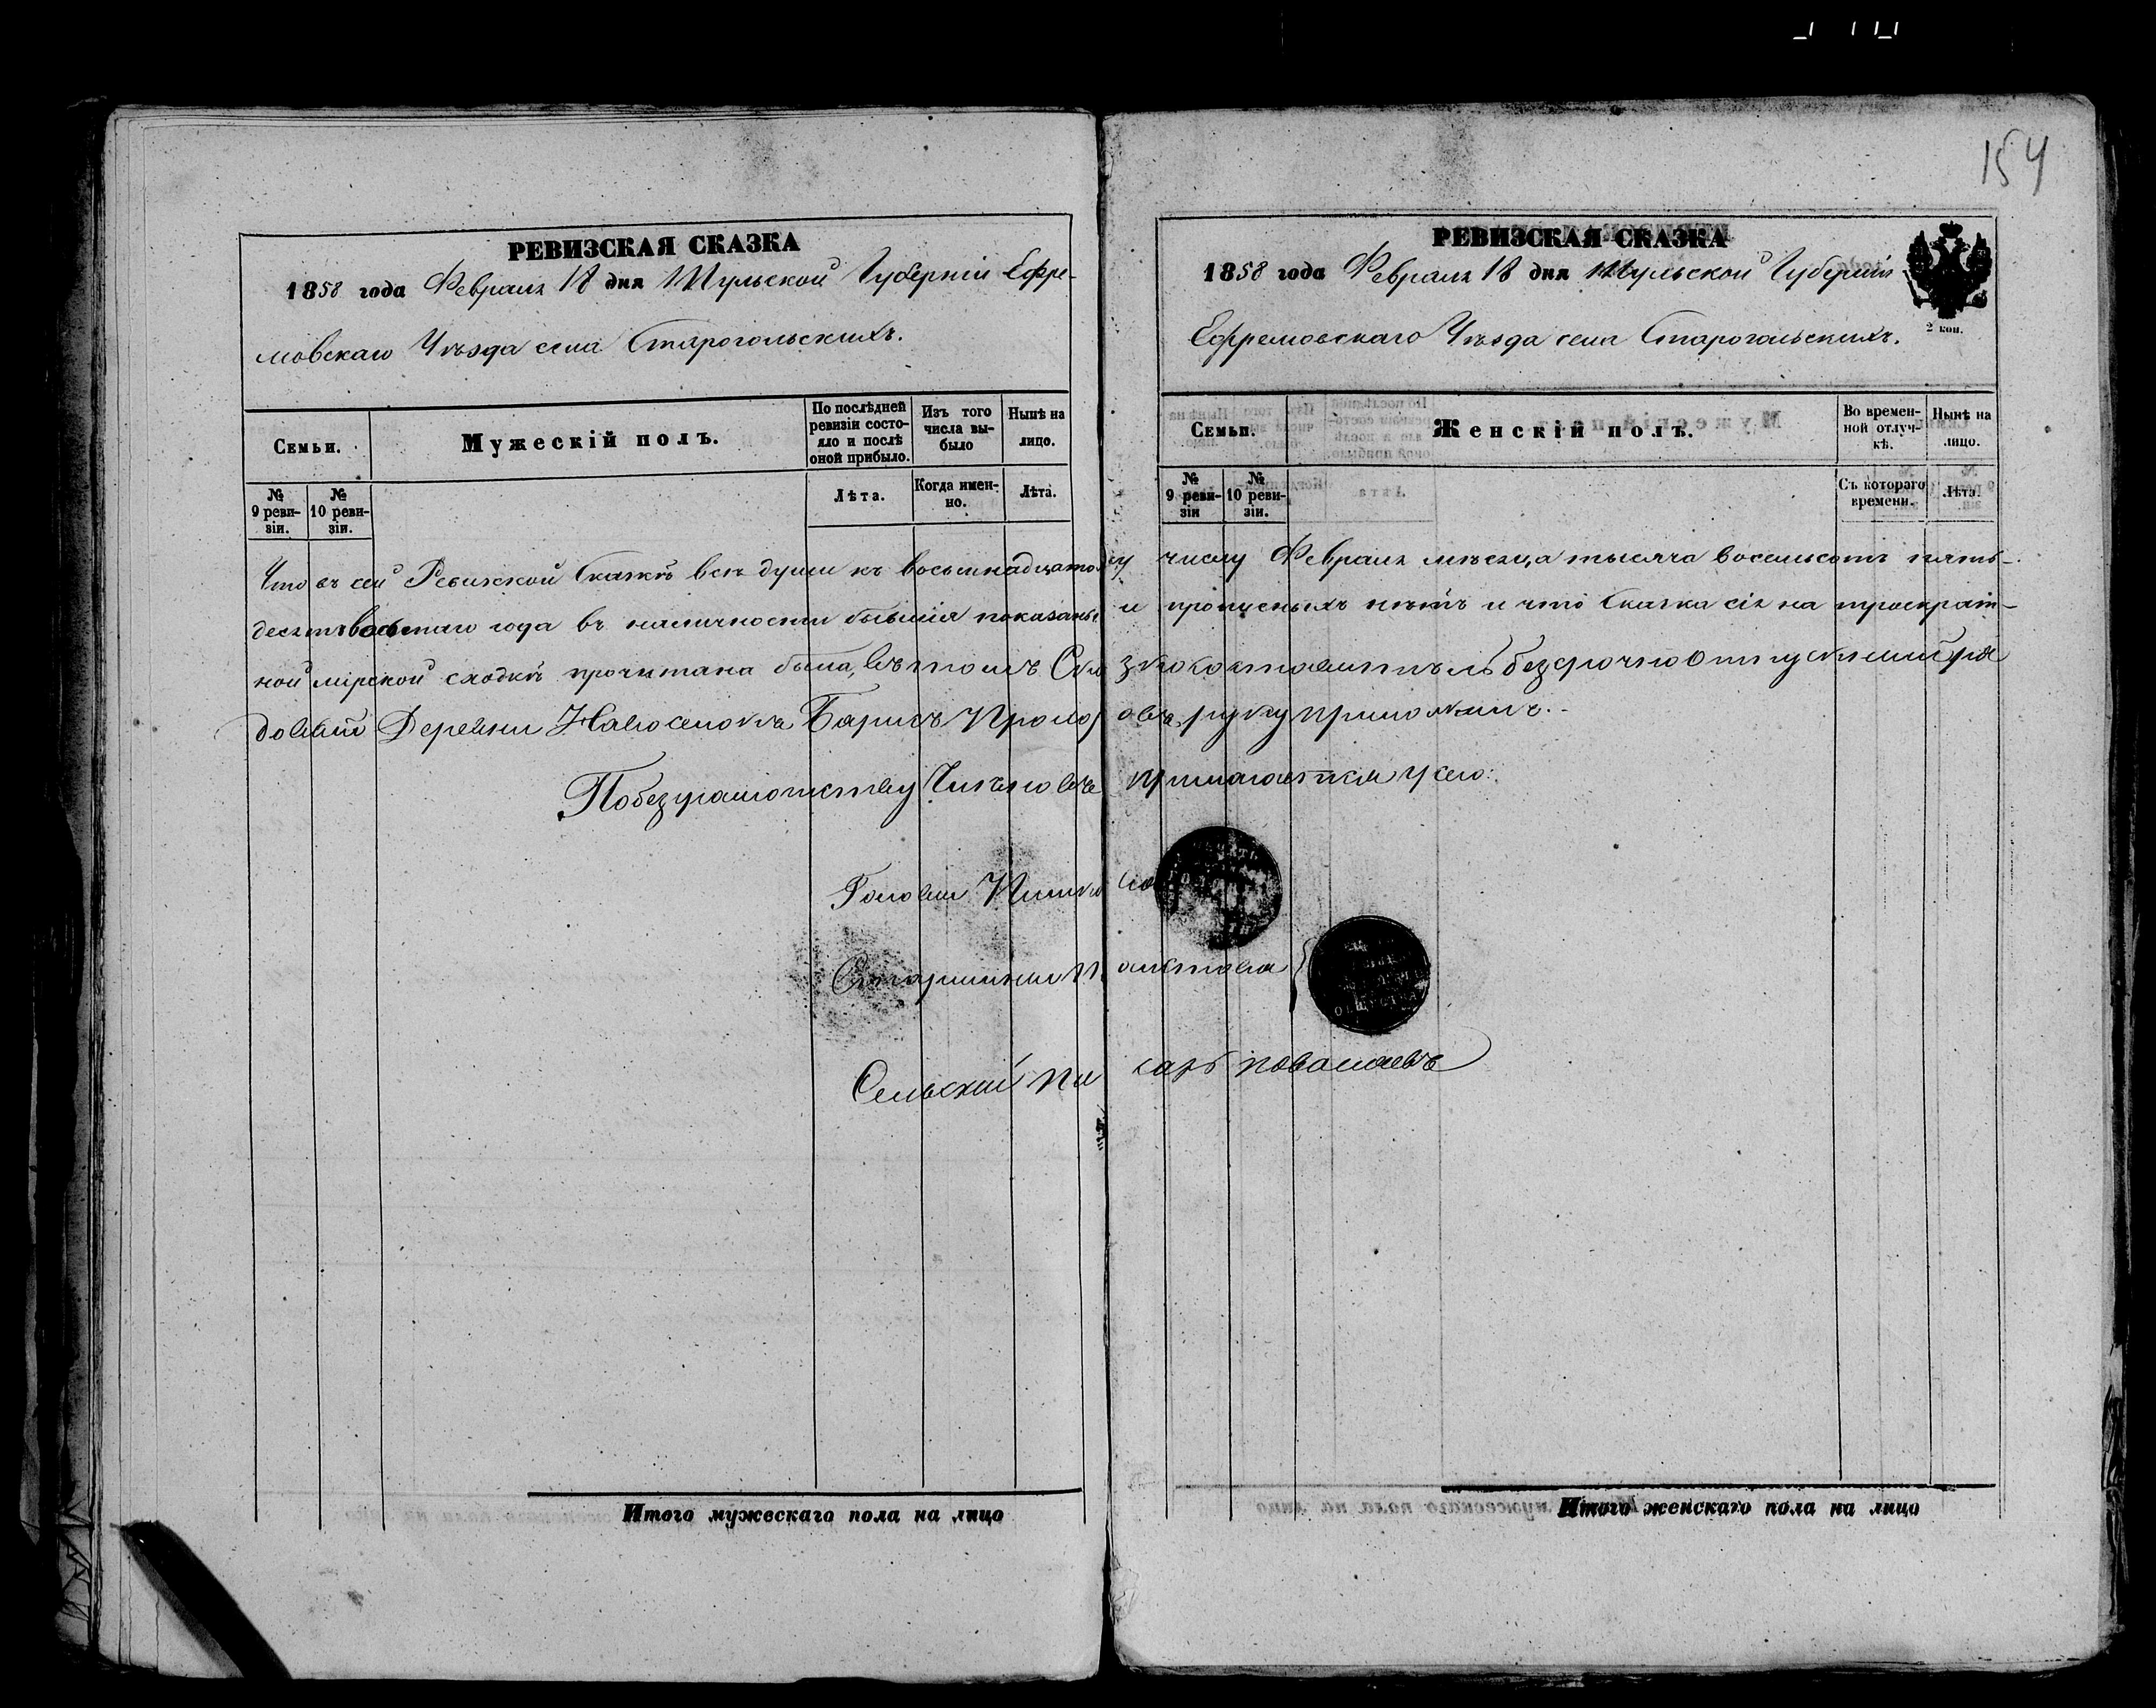 154
РЕВИЗСКАЯ СКАЗКА
1858 года Февраля 18 дня Тульской Губерніи Ефре-
мовскаго Уѣзда села Старогольскихъ.
Семьи.
Мужескій полъ.
По послѣдней ревизіи состояло и послѣ оной прибыло.
Изъ того числа выбыло
Нынѣ на лицо.
№ 9 ревизіи.
№ 10 ревизіи.
Лѣта.
Когда именно.
Лѣта.
РЕВИЗСКАЯ СКАЗКА
1858 года Февраля 18 дня Тульской Губерніи
Ефремовскаго Уѣзда села Старогольскихъ.
2 коп.
Семьи.
Женскій полъ.
Во временной отлучкѣ.
Нынѣ на лицо.
№ 9 ревизіи
№ 10 ревизіи.
Съ котораго времени.
Лѣта.
Что въ сей Ревизской Сказкѣ всѣ души къ восьмнадцатому числу Февраля мѣсяца тысяча восемсотъ пять-
десятъ восьмаго года въ наличности бывшія показаны и пропускныхъ нѣтъ и что Сказка сія на троекрат-
ной мірской сходкѣ прочитана была, въ томъ безсрочно Отпускной ря
довой Деревни Борисъ руку приложилъ.
По безграмотству прилагается
Голова
Старшина
Сельскій писарь
Итого мужескаго пола на лицо
Итого женскаго пола на лицо